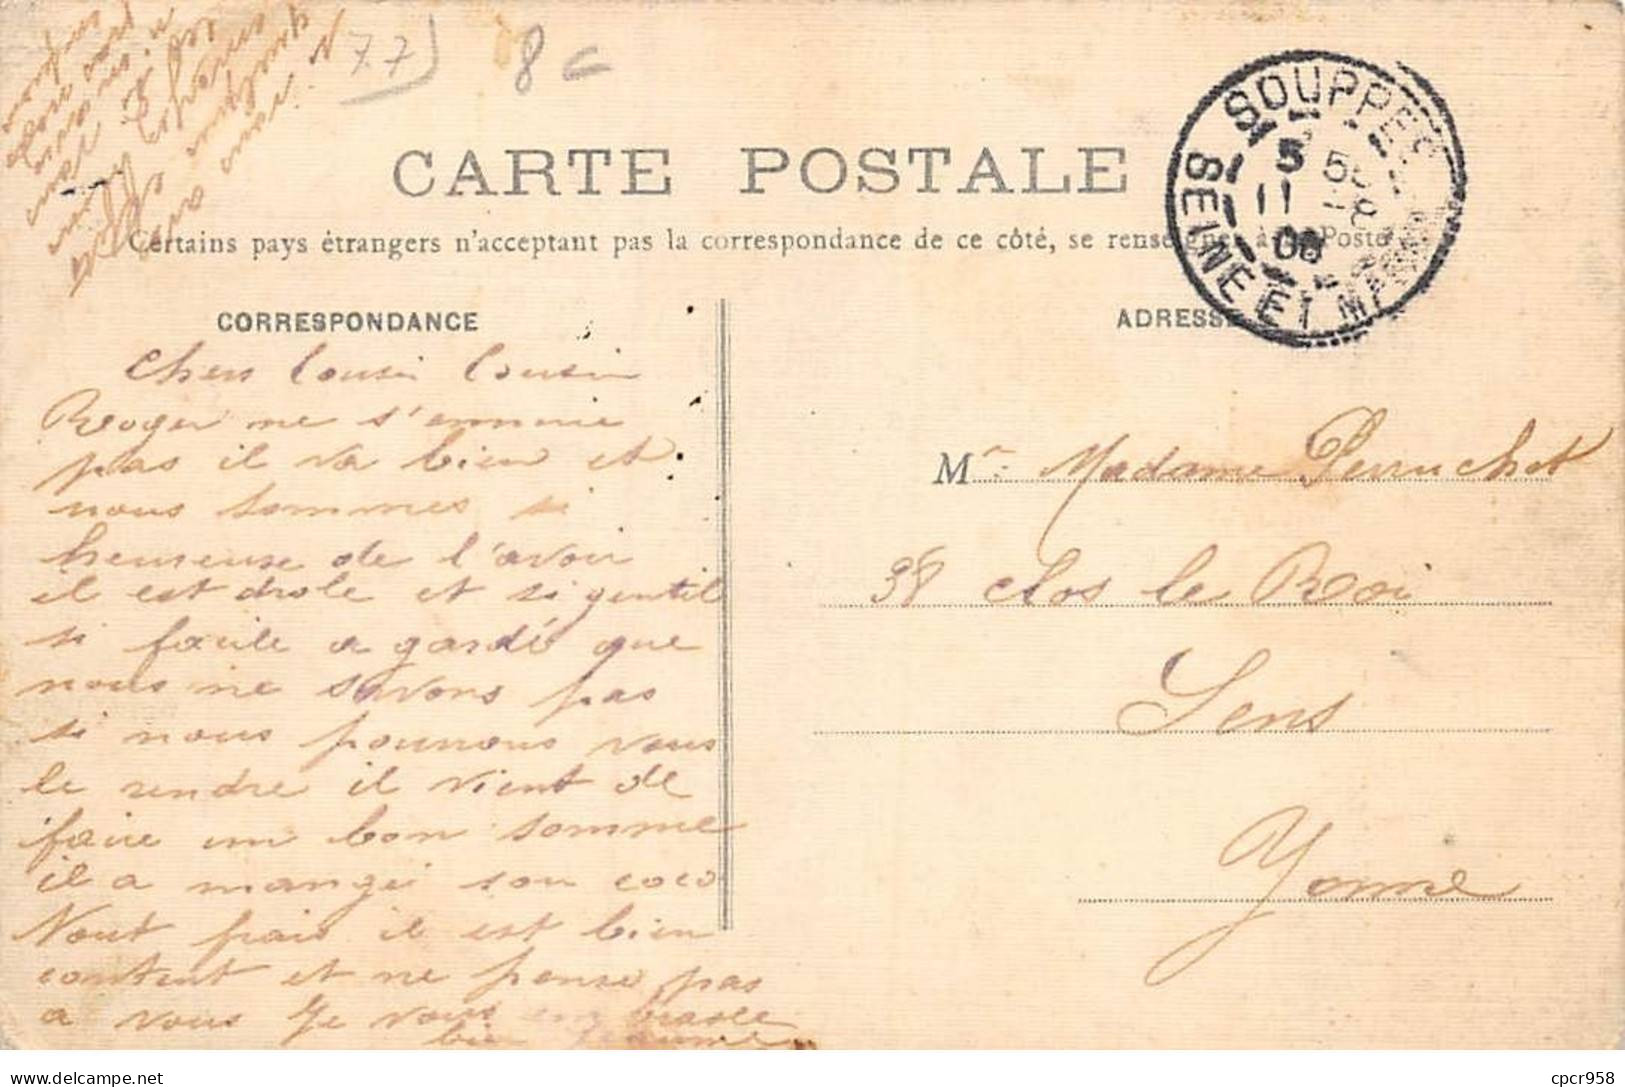 77
8c
CARTE POSTALE
Certains pays étrangers n'acceptant pas la correspondance de ce côté, se renseigner à la Poste
SOUPPES
5 50
11
08
SEINE ET MARNE
CORRESPONDANCE
ADRESSE
Cher Cousin Cousin
Roger ne s'ennuie
pas il va bien et
nous sommes si
heureuse de l'avoir
il est drole et si gentil
si facile a gardé que
nous ne savons pas
si nous pourrons vous
le rendre il vient de
faire un bon somme
il a mangé son coco
tout frais il est bien
content et ne pense pas
a vous Je vous embrasse
bien
M Madame Perruchot
38 Clos le Roi
Sens
Yonne
cpcr958